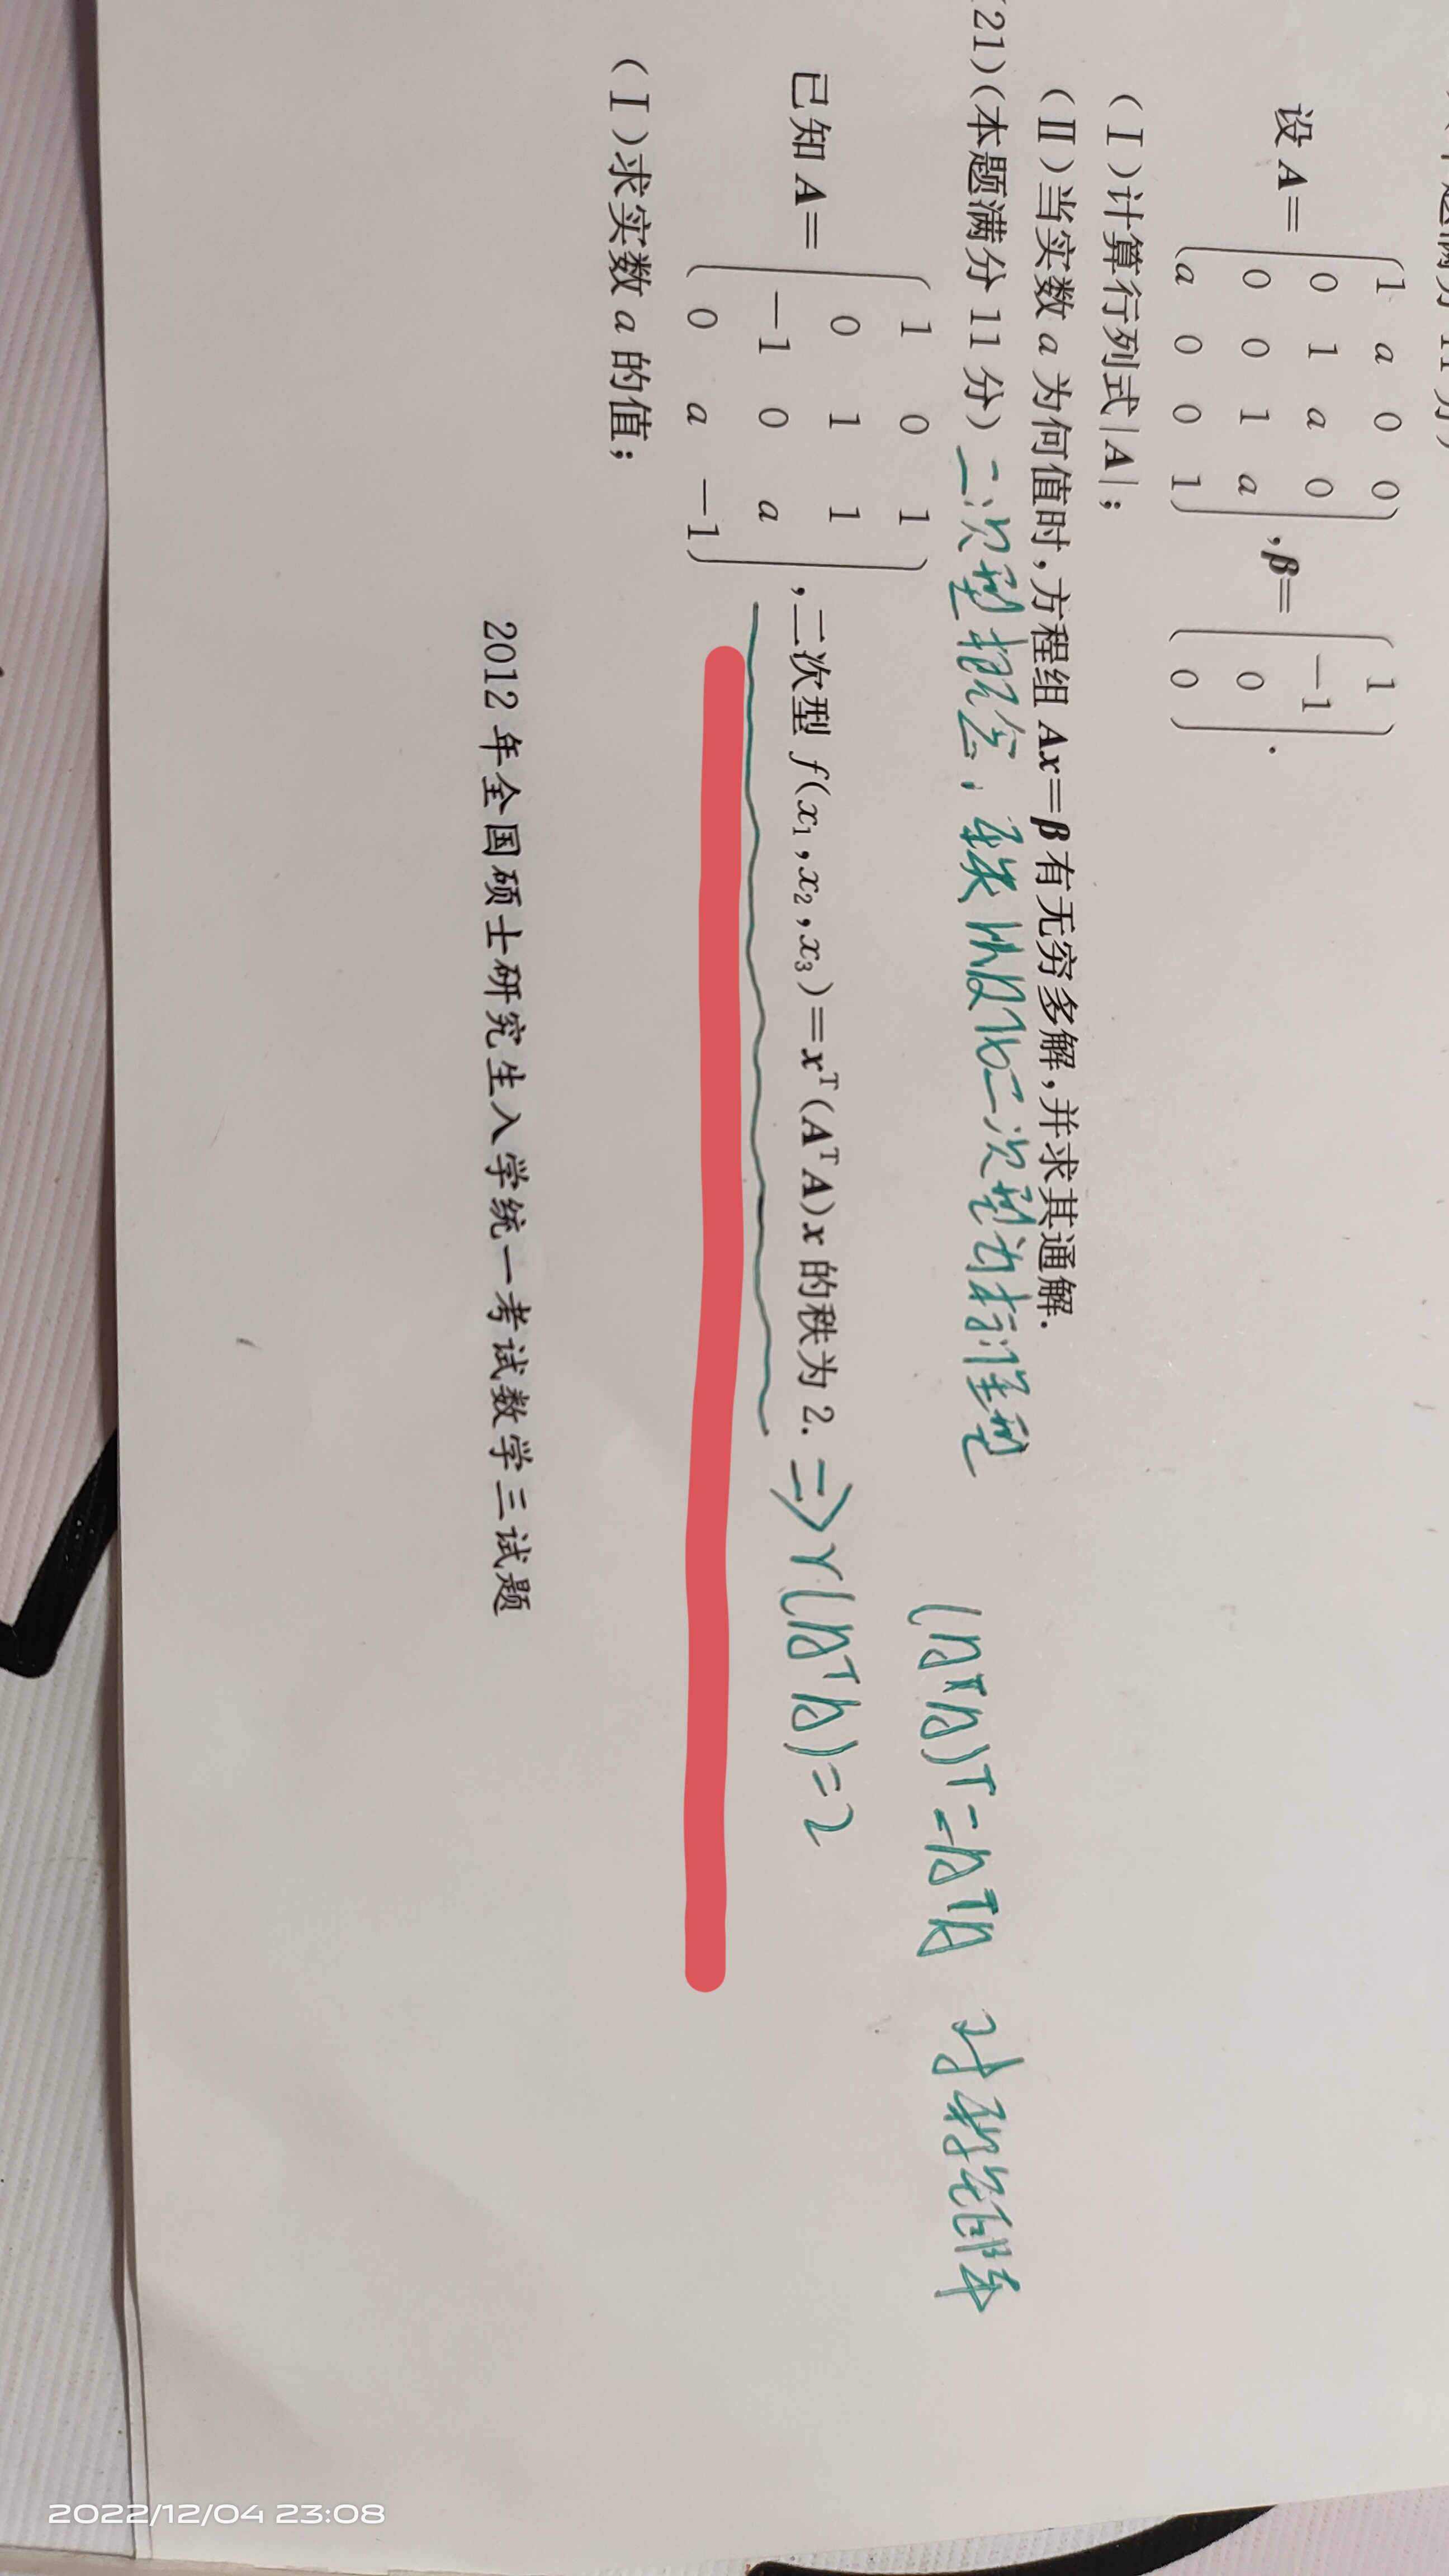 设 A= ( 1 a 0 0
0 1 a 0
0 0 1 a
a 0 0 1 ) , β= ( 1
-1
0
0 ) .
(Ⅰ)计算行列式|A|;
(Ⅱ)当实数 a 为何值时,方程组 Ax=β 有无穷多解,并求其通解.
(21)(本题满分 11 分) 二次型概念, 求 二次型为标准型
(AᵀA)ᵀ=AᵀA 对称矩阵
已知 A= ( 1 0 1
0 1 1
-1 0 a
0 a -1 ) ,二次型 f(x₁,x₂,x₃)=xᵀ(AᵀA)x 的秩为 2. ⇒ r(AᵀA)=2
(Ⅰ)求实数 a 的值;
2012 年全国硕士研究生入学统一考试数学三试题
2022/12/04 23:08